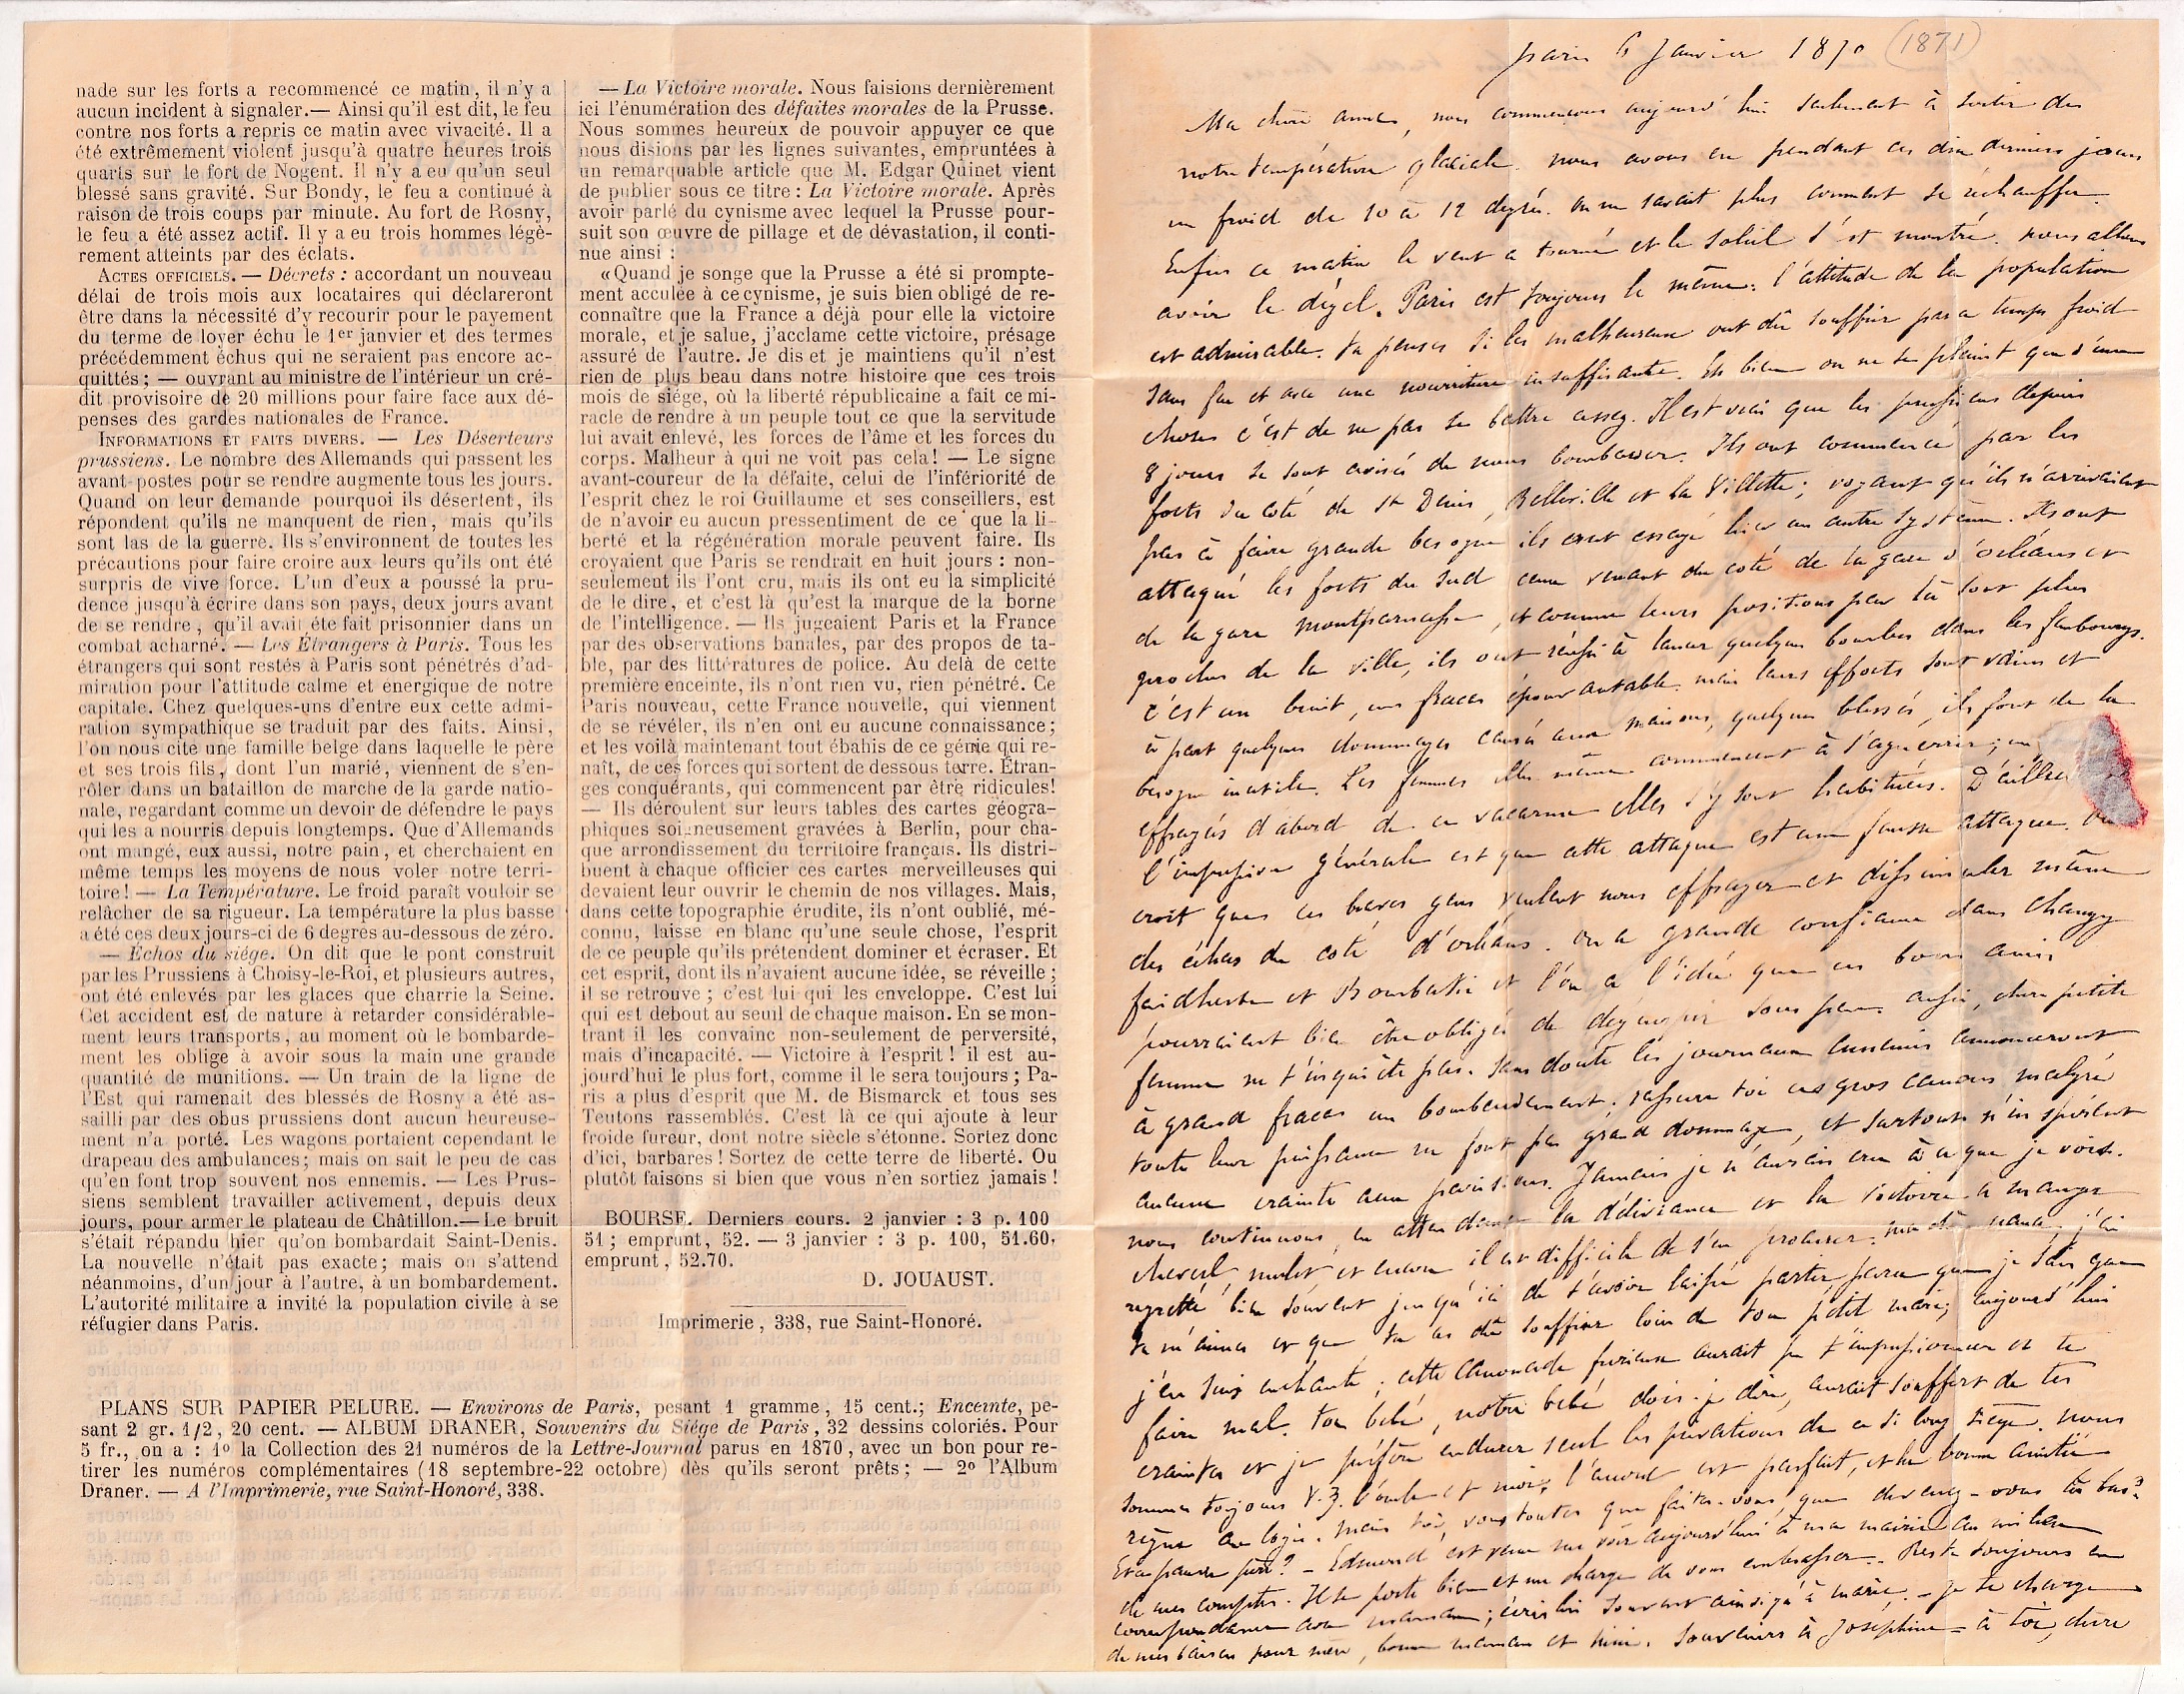 nade sur les forts a recommencé ce matin, il n'y a
aucun incident à signaler.— Ainsi qu'il est dit, le feu
contre nos forts a repris ce matin avec vivacité. Il a
été extrêmement violent jusqu'à quatre heures trois
quarts sur le fort de Nogent. Il n'y a eu qu'un seul
blessé sans gravité. Sur Bondy, le feu a continué à
raison de trois coups par minute. Au fort de Rosny,
le feu a été assez actif. Il y a eu trois hommes légè-
rement atteints par des éclats.
ACTES OFFICIELS. — Décrets : accordant un nouveau
délai de trois mois aux locataires qui déclareront
être dans la nécessité d'y recourir pour le payement
du terme de loyer échu le 1er janvier et des termes
précédemment échus qui ne seraient pas encore ac-
quittés; — ouvrant au ministre de l'intérieur un cré-
dit provisoire de 20 millions pour faire face aux dé-
penses des gardes nationales de France.
INFORMATIONS ET FAITS DIVERS. — Les Déserteurs
prussiens. Le nombre des Allemands qui passent les
avant-postes pour se rendre augmente tous les jours.
Quand on leur demande pourquoi ils désertent, ils
répondent qu'ils ne manquent de rien, mais qu'ils
sont las de la guerre. Ils s'environnent de toutes les
précautions pour faire croire aux leurs qu'ils ont été
surpris de vive force. L'un d'eux a poussé la pru-
dence jusqu'à écrire dans son pays, deux jours avant
de se rendre, qu'il avait été fait prisonnier dans un
combat acharné. — Les Étrangers à Paris. Tous les
étrangers qui sont restés à Paris sont pénétrés d'ad-
miration pour l'attitude calme et énergique de notre
capitale. Chez quelques-uns d'entre eux cette admi-
ration sympathique se traduit par des faits. Ainsi,
l'on nous cite une famille belge dans laquelle le père
et ses trois fils, dont l'un marié, viennent de s'en-
rôler dans un bataillon de marche de la garde natio-
nale, regardant comme un devoir de défendre le pays
qui les a nourris depuis longtemps. Que d'Allemands
ont mangé, eux aussi, notre pain, et cherchaient en
même temps les moyens de nous voler notre terri-
toire! — La Température. Le froid paraît vouloir se
relâcher de sa rigueur. La température la plus basse
a été ces deux jours-ci de 6 degrés au-dessous de zéro.
— Échos du siége. On dit que le pont construit
par les Prussiens à Choisy-le-Roi, et plusieurs autres,
ont été enlevés par les glaces que charrie la Seine.
Cet accident est de nature à retarder considérable-
ment leurs transports, au moment où le bombarde-
ment les oblige à avoir sous la main une grande
quantité de munitions. — Un train de la ligne de
l'Est qui ramenait des blessés de Rosny a été as-
sailli par des obus prussiens dont aucun heureuse-
ment n'a porté. Les wagons portaient cependant le
drapeau des ambulances; mais on sait le peu de cas
qu'en font trop souvent nos ennemis. — Les Prus-
siens semblent travailler activement, depuis deux
jours, pour armer le plateau de Châtillon.— Le bruit
s'était répandu hier qu'on bombardait Saint-Denis.
La nouvelle n'était pas exacte; mais on s'attend
néanmoins, d'un jour à l'autre, à un bombardement.
L'autorité militaire a invité la population civile à se
réfugier dans Paris.
— La Victoire morale. Nous faisions dernièrement
ici l'énumération des défaites morales de la Prusse.
Nous sommes heureux de pouvoir appuyer ce que
nous disions par les lignes suivantes, empruntées à
un remarquable article que M. Edgar Quinet vient
de publier sous ce titre : La Victoire morale. Après
avoir parlé du cynisme avec lequel la Prusse pour-
suit son œuvre de pillage et de dévastation, il conti-
nue ainsi :
«Quand je songe que la Prusse a été si prompte-
ment acculée à ce cynisme, je suis bien obligé de re-
connaître que la France a déjà pour elle la victoire
morale, et je salue, j'acclame cette victoire, présage
assuré de l'autre. Je dis et je maintiens qu'il n'est
rien de plus beau dans notre histoire que ces trois
mois de siége, où la liberté républicaine a fait ce mi-
racle de rendre à un peuple tout ce que la servitude
lui avait enlevé, les forces de l'âme et les forces du
corps. Malheur à qui ne voit pas cela! — Le signe
avant-coureur de la défaite, celui de l'infériorité de
l'esprit chez le roi Guillaume et ses conseillers, est
de n'avoir eu aucun pressentiment de ce que la li-
berté et la régénération morale peuvent faire. Ils
croyaient que Paris se rendrait en huit jours : non-
seulement ils l'ont cru, mais ils ont eu la simplicité
de le dire, et c'est là qu'est la marque de la borne
de l'intelligence. — Ils jugeaient Paris et la France
par des observations banales, par des propos de ta-
ble, par des littératures de police. Au delà de cette
première enceinte, ils n'ont rien vu, rien pénétré. Ce
Paris nouveau, cette France nouvelle, qui viennent
de se révéler, ils n'en ont eu aucune connaissance;
et les voilà maintenant tout ébahis de ce génie qui re-
naît, de ces forces qui sortent de dessous terre. Étran-
ges conquérants, qui commencent par être ridicules!
— Ils déroulent sur leurs tables des cartes géogra-
phiques soigneusement gravées à Berlin, pour cha-
que arrondissement du territoire français. Ils distri-
buent à chaque officier ces cartes merveilleuses qui
devaient leur ouvrir le chemin de nos villages. Mais,
dans cette topographie érudite, ils n'ont oublié, mé-
connu, laissé en blanc qu'une seule chose, l'esprit
de ce peuple qu'ils prétendent dominer et écraser. Et
cet esprit, dont ils n'avaient aucune idée, se réveille;
il se retrouve; c'est lui qui les enveloppe. C'est lui
qui est debout au seuil de chaque maison. En se mon-
trant il les convainc non-seulement de perversité,
mais d'incapacité. — Victoire à l'esprit! il est au-
jourd'hui le plus fort, comme il le sera toujours; Pa-
ris a plus d'esprit que M. de Bismarck et tous ses
Teutons rassemblés. C'est là ce qui ajoute à leur
froide fureur, dont notre siècle s'étonne. Sortez donc
d'ici, barbares! Sortez de cette terre de liberté. Ou
plutôt faisons si bien que vous n'en sortiez jamais!
BOURSE. Derniers cours. 2 janvier : 3 p. 100
51; emprunt, 52. — 3 janvier : 3 p. 100, 51.60,
emprunt, 52.70.
D. JOUAUST.
Imprimerie, 338, rue Saint-Honoré.
PLANS SUR PAPIER PELURE. — Environs de Paris, pesant 1 gramme, 15 cent.; Enceinte, pe-
sant 2 gr. 1/2, 20 cent. — ALBUM DRANER, Souvenirs du Siége de Paris, 32 dessins coloriés. Pour
5 fr., on a : 1o la Collection des 21 numéros de la Lettre-Journal parus en 1870, avec un bon pour re-
tirer les numéros complémentaires (18 septembre-22 octobre) dès qu'ils seront prêts; — 2o l'Album
Draner. — A l'Imprimerie, rue Saint-Honoré, 338.
paris 6 Janvier 1870 (1871)
Ma chère amie, nous commençons aujourd'hui seulement à sortir de
notre température glaciale. nous avons eu pendant ces dix derniers jours
un froid de 10 à 12 degrés. on ne savait plus comment se réchauffer.
Enfin ce matin le vent a tourné et le soleil s'est montré. nous allons
avoir le dégel. Paris est toujours le même: l'attitude de la population
est admirable. tu penses si les malheureux ont dû souffrir par ce temps froid
sans feu et avec une nourriture insuffisante. Eh bien on ne se plaint que d'une
chose c'est de ne pas se battre assez. Il est vrai que les prussiens depuis
8 jours se sont avisés de nous bombarder. Ils ont commencé par les
forts du coté de St Denis, Belleville et la Villette; voyant qu'ils n'arrivaient
pas à faire grande besogne ils ont essayé hier un autre système. Ils ont
attaqué les forts du sud ceux venant du coté de la gare d'orléans et
de la gare montparnasse, et comme leurs positions par là sont plus
proches de la ville, ils ont réussi à lancer quelques bombes dans les faubourgs.
c'est un bruit, un fracas épouvantable. mais leurs efforts sont vains et
à part quelques dommages causés aux maisons, quelques blessés, ils font de la
besogne inutile. Les femmes elles même commencent à s'aguerrir;
effrayés d'abord de ce vacarme elles s'y sont habituées. D'ailleurs
l'impression générale est que cette attaque est une fausse attaque. on
croit que ces braves gens veulent nous effrayer et dissimuler même
des échecs du coté d'orléans. on a grande confiance dans Changy
faidherbe et Bourbaki et l'on a l'idée que ces bons amis
pourraient bien être obligés de déguerpir sous peu. aussi, chère petite
femme ne t'inquiète pas. Sans doute les journaux ennemis annonceront
à grand fracas un bombardement. rassure toi ces gros canons malgré
toute leur puissance ne font pas grand dommage, et surtout n'inspirent
aucune crainte aux parisiens. Jamais je n'aurais cru à ce que je vois.
nous continuons, en attendant la délivrance et la victoire à manger
cheval, mulet, et encore il est difficile de s'en procurer. j'ai
regretté bien souvent jusqu'ici de t'avoir laissé partir, parce que je sais que
tu m'aimes et que tu as dû souffrir loin de ton petit mari; aujourd'hui
j'en suis enchanté; cette canonnade furieuse aurait pu t'impressionner et te
faire mal. ton bébé, notre bébé dois-je dire, aurait souffert de tes
craintes et je préfère endurer seul les privations de ce si long siège. nous
sommes toujours et moi; l'accord est parfait, et la bonne amitié
règne au logis. mais toi, vous toutes que faites-vous, que devenez-vous là bas?
Et ce pauvre père? — Edmond est venu me voir aujourd'hui à ma mairie au milieu
de mes comptes. Il se porte bien et me charge de vous embrasser. Reste toujours en
correspondance avec maman; écris lui souvent ainsi qu'à marie. — Je te charge
de mes baisers pour mère, bonne maman et . Souvenirs à Joséphine — à toi, chère